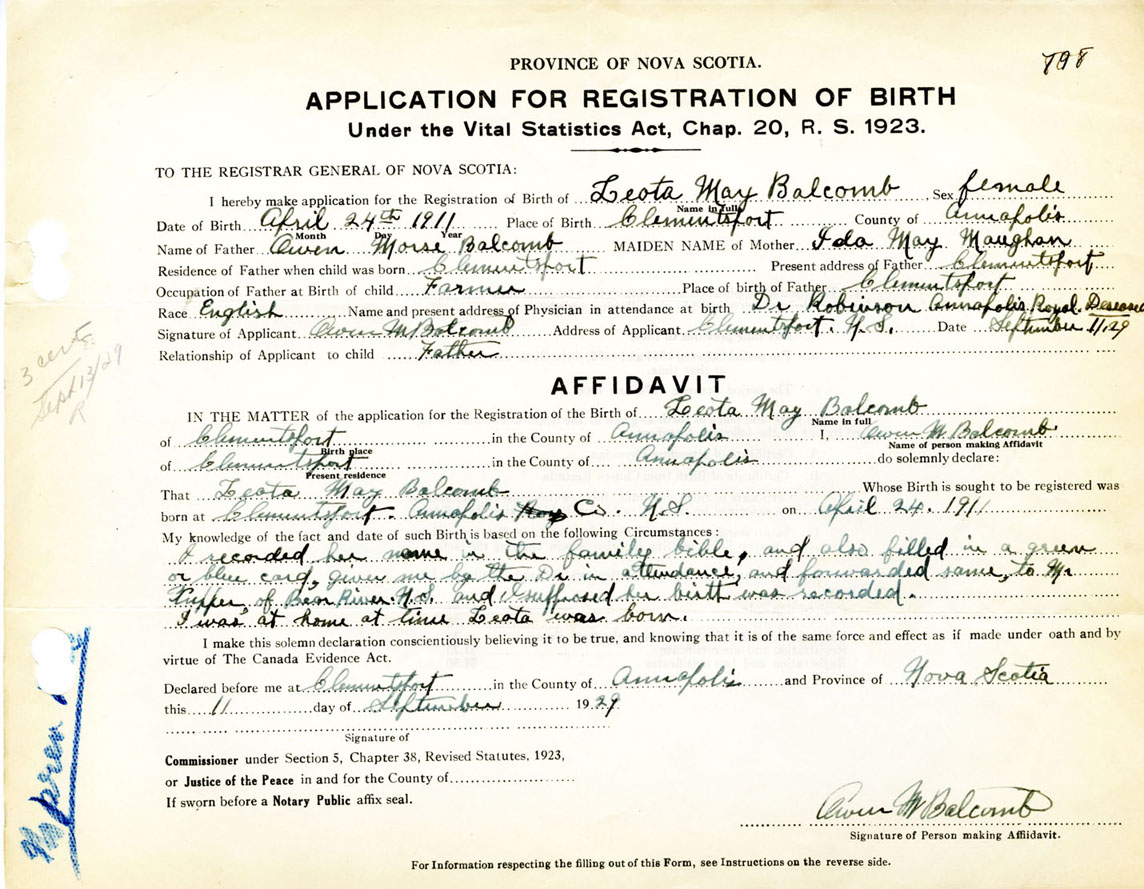 798
PROVINCE OF NOVA SCOTIA.
APPLICATION FOR REGISTRATION OF BIRTH
Under the Vital Statistics Act, Chap. 20, R. S. 1923.
TO THE REGISTRAR GENERAL OF NOVA SCOTIA:
I hereby make application for the Registration of Birth of Leota May Balcomb Sex female
Name in full
Date of Birth April 24th 1911 Place of Birth Clementsport County of Annapolis
Month Day Year
Name of Father Owen Morse Balcomb MAIDEN NAME of Mother Ida May Maughan
Residence of Father when child was born Clementsport Present address of Father Clementsport
Occupation of Father at Birth of child Farmer Place of birth of Father Clementsport
Race English Name and present address of Physician in attendance at birth Dr Robinson Annapolis Royal. Deceased
Signature of Applicant Owen M Balcomb Address of Applicant Clementsport. N.S. Date September 11.29
Relationship of Applicant to child Father
3 cert.
Sept 13/29
R
AFFIDAVIT
IN THE MATTER of the application for the Registration of the Birth of Leota May Balcomb
Name in full
of Clementsport in the County of Annapolis I, Owen M Balcomb
Birth place Name of person making Affidavit
of Clementsport in the County of Annapolis do solemnly declare:
Present residence
That Leota May Balcomb Whose Birth is sought to be registered was
born at Clementsport. Annapolis Co. N.S. on April 24. 1911
My knowledge of the fact and date of such Birth is based on the following Circumstances:
I recorded her name in the family bible, and also filled in a green
or blue card, given me by the Dr in attendance, and forwarded same, to Mr
Pupper, of Bear River N.S. and I supposed her birth was recorded.
I was at home at time Leota was born.
I make this solemn declaration conscientiously believing it to be true, and knowing that it is of the same force and effect as if made under oath and by
virtue of The Canada Evidence Act.
Declared before me at Clementsport in the County of Annapolis and Province of Nova Scotia
this 11 day of September 1929
Signature of
Commissioner under Section 5, Chapter 38, Revised Statutes, 1923,
or Justice of the Peace in and for the County of
If sworn before a Notary Public affix seal.
Owen M Balcomb
Signature of Person making Affiidavit.
For Information respecting the filling out of this Form, see Instructions on the reverse side.